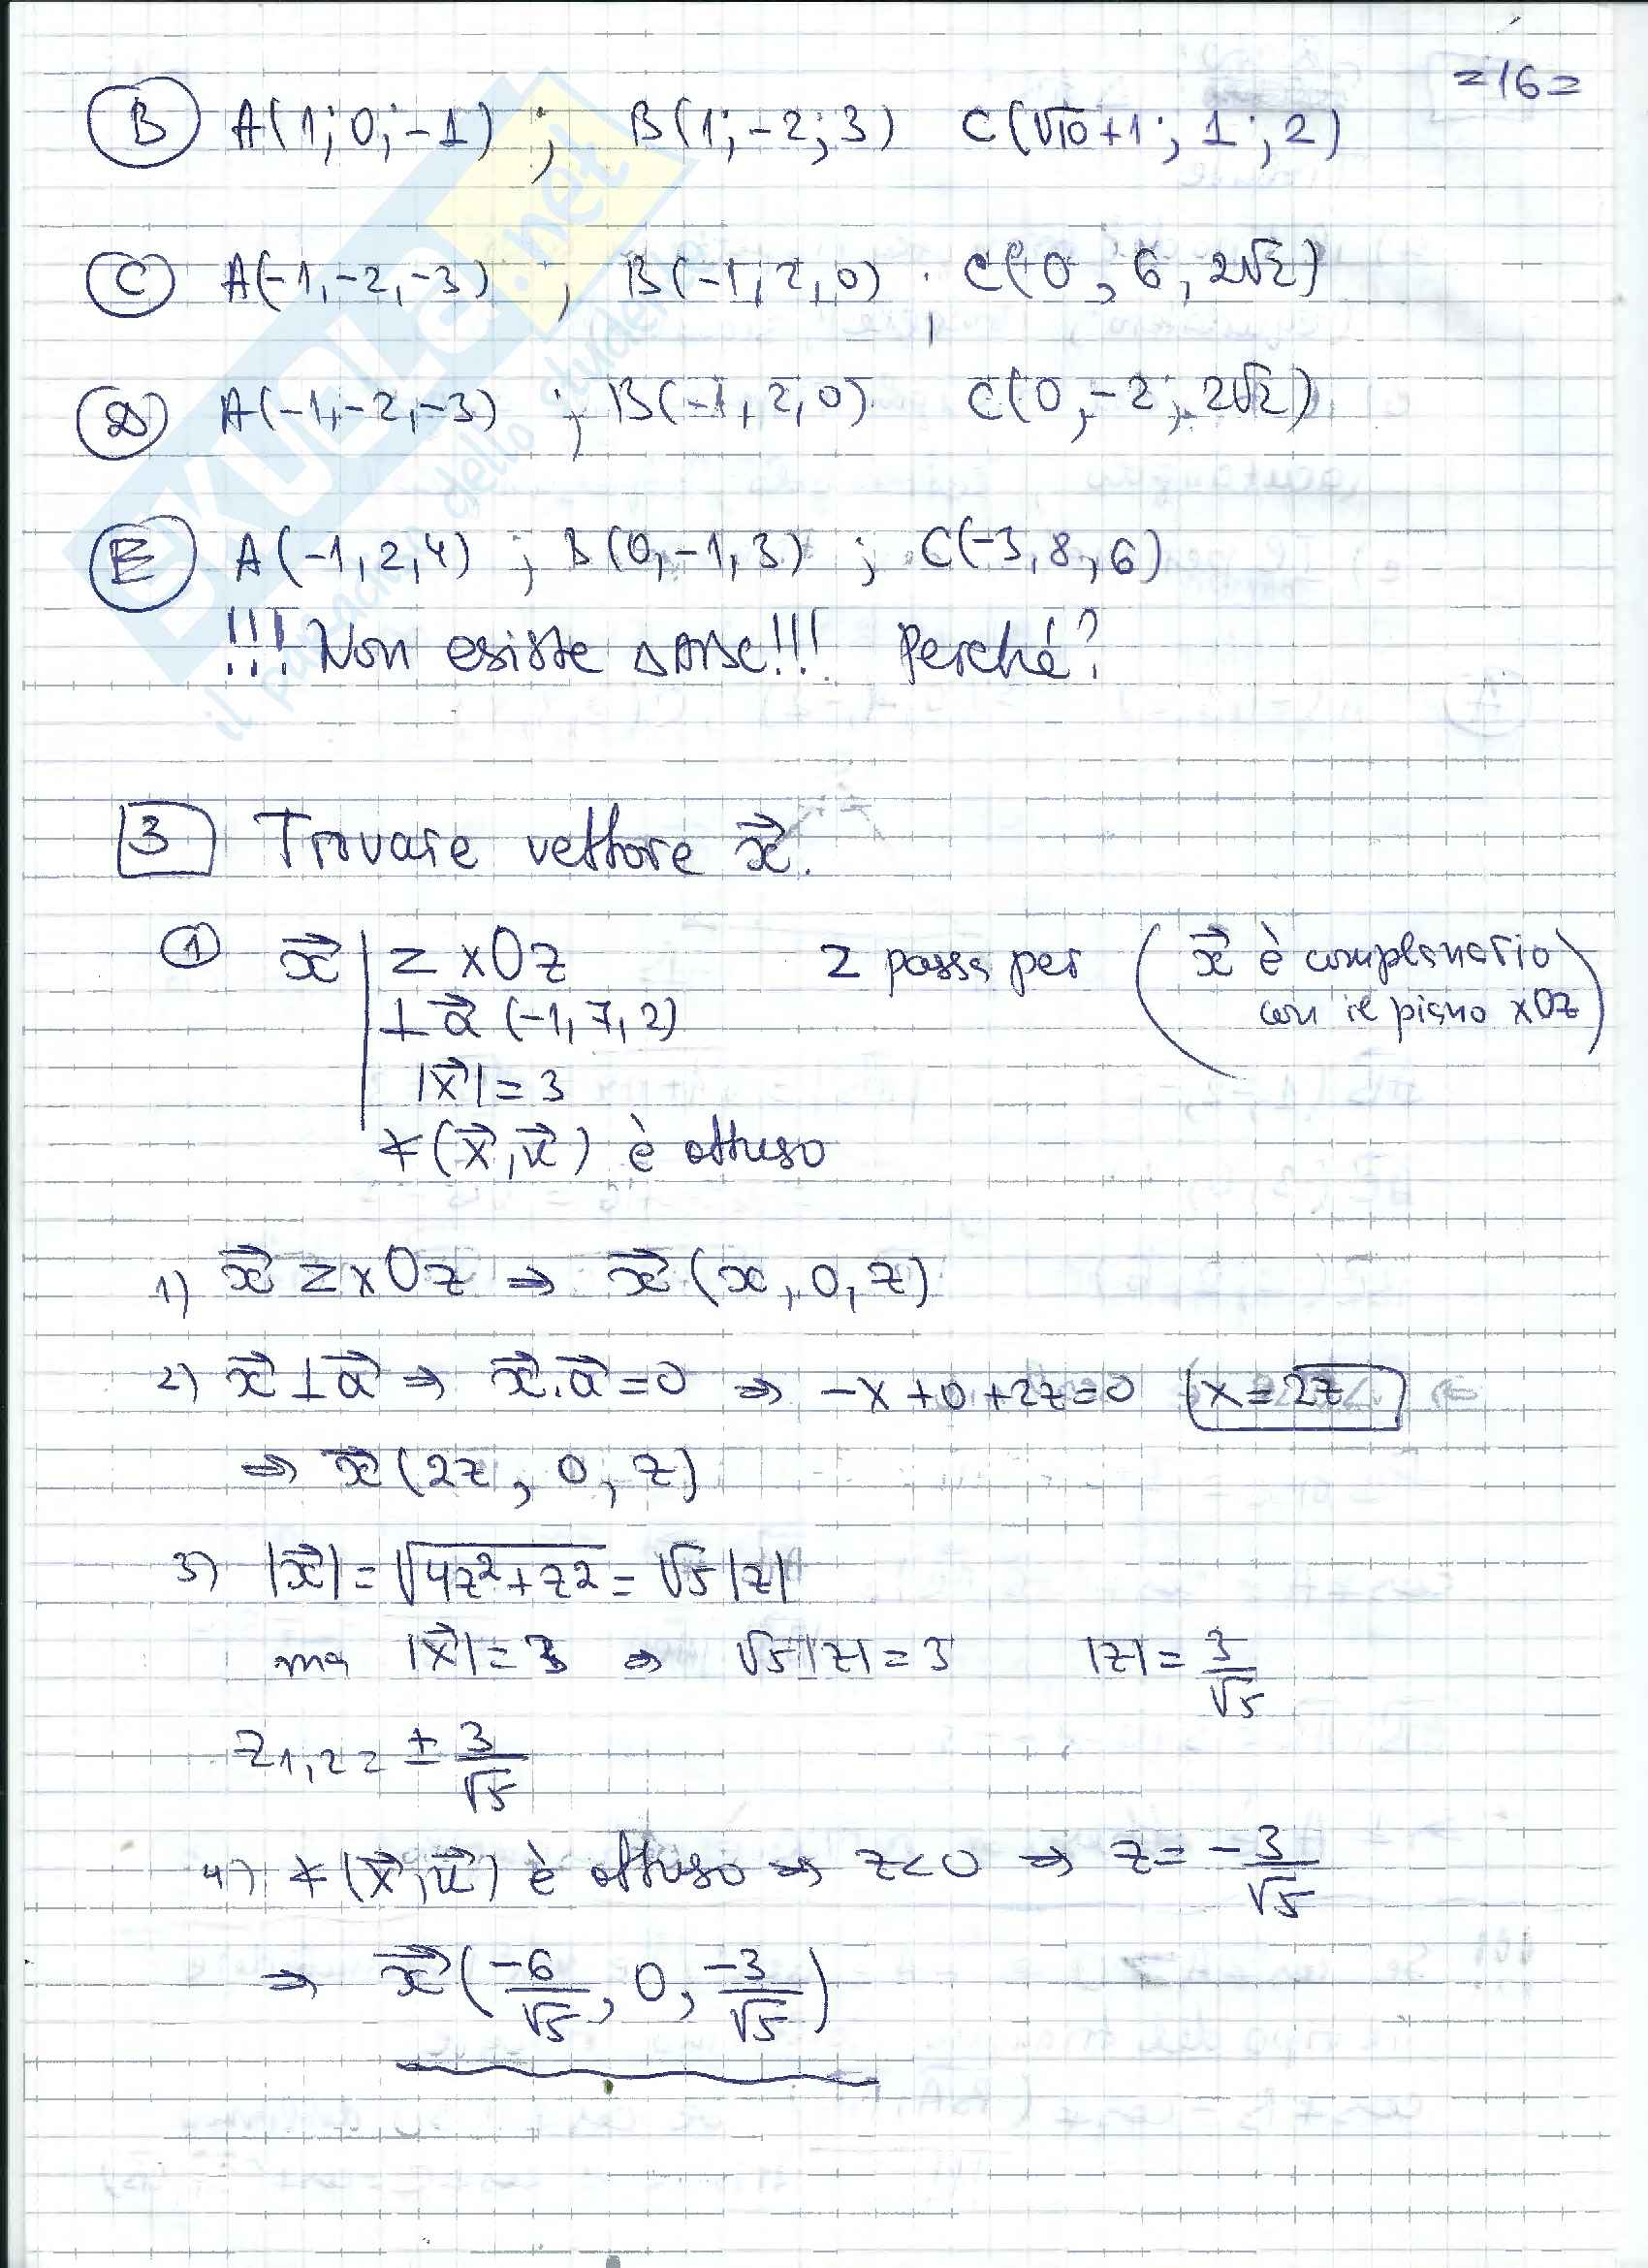 =16=
B A(1; 0; -1) ; B(1; -2; 3) C(√10+1; 1; 2)
C A(-1,-2,-3) ; B(-1,2,0) ; C(0, 6, 2√2)
D A(-1,-2,-3) ; B(-1,2,0) C(0,-2; 2√2)
E A(-1,2,4) ; B(0,-1,3) ; C(-3,8,6)
!!! Non esiste ΔABC!!! Perché?
3 Trovare vettore x⃗.
1 x⃗ | Z xOz Z passa per (x⃗ è complanario
con il piano xOz)
⊥ a⃗ (-1,7,2)
|x⃗| = 3
∢(x⃗, u⃗) è ottuso
1) x⃗ Z xOz ⇒ x⃗(x, 0, z)
2) x⃗ ⊥ a⃗ ⇒ x⃗.a⃗ = 0 ⇒ -x+0+2z=0 x=2z
⇒ x⃗(2z, 0, z)
3) |x⃗| = √4z²+z² = √5 |z|
ma |x⃗| = 3 ⇒ √5 |z| = 3 |z| = 3/√5
z1,2 = ± 3/√5
4) ∢(x⃗, u⃗) è ottuso ⇒ z<0 ⇒ z = -3/√5
⇒ x⃗(-6/√5, 0, -3/√5)
SKUOLA.net
il paradiso dello studente